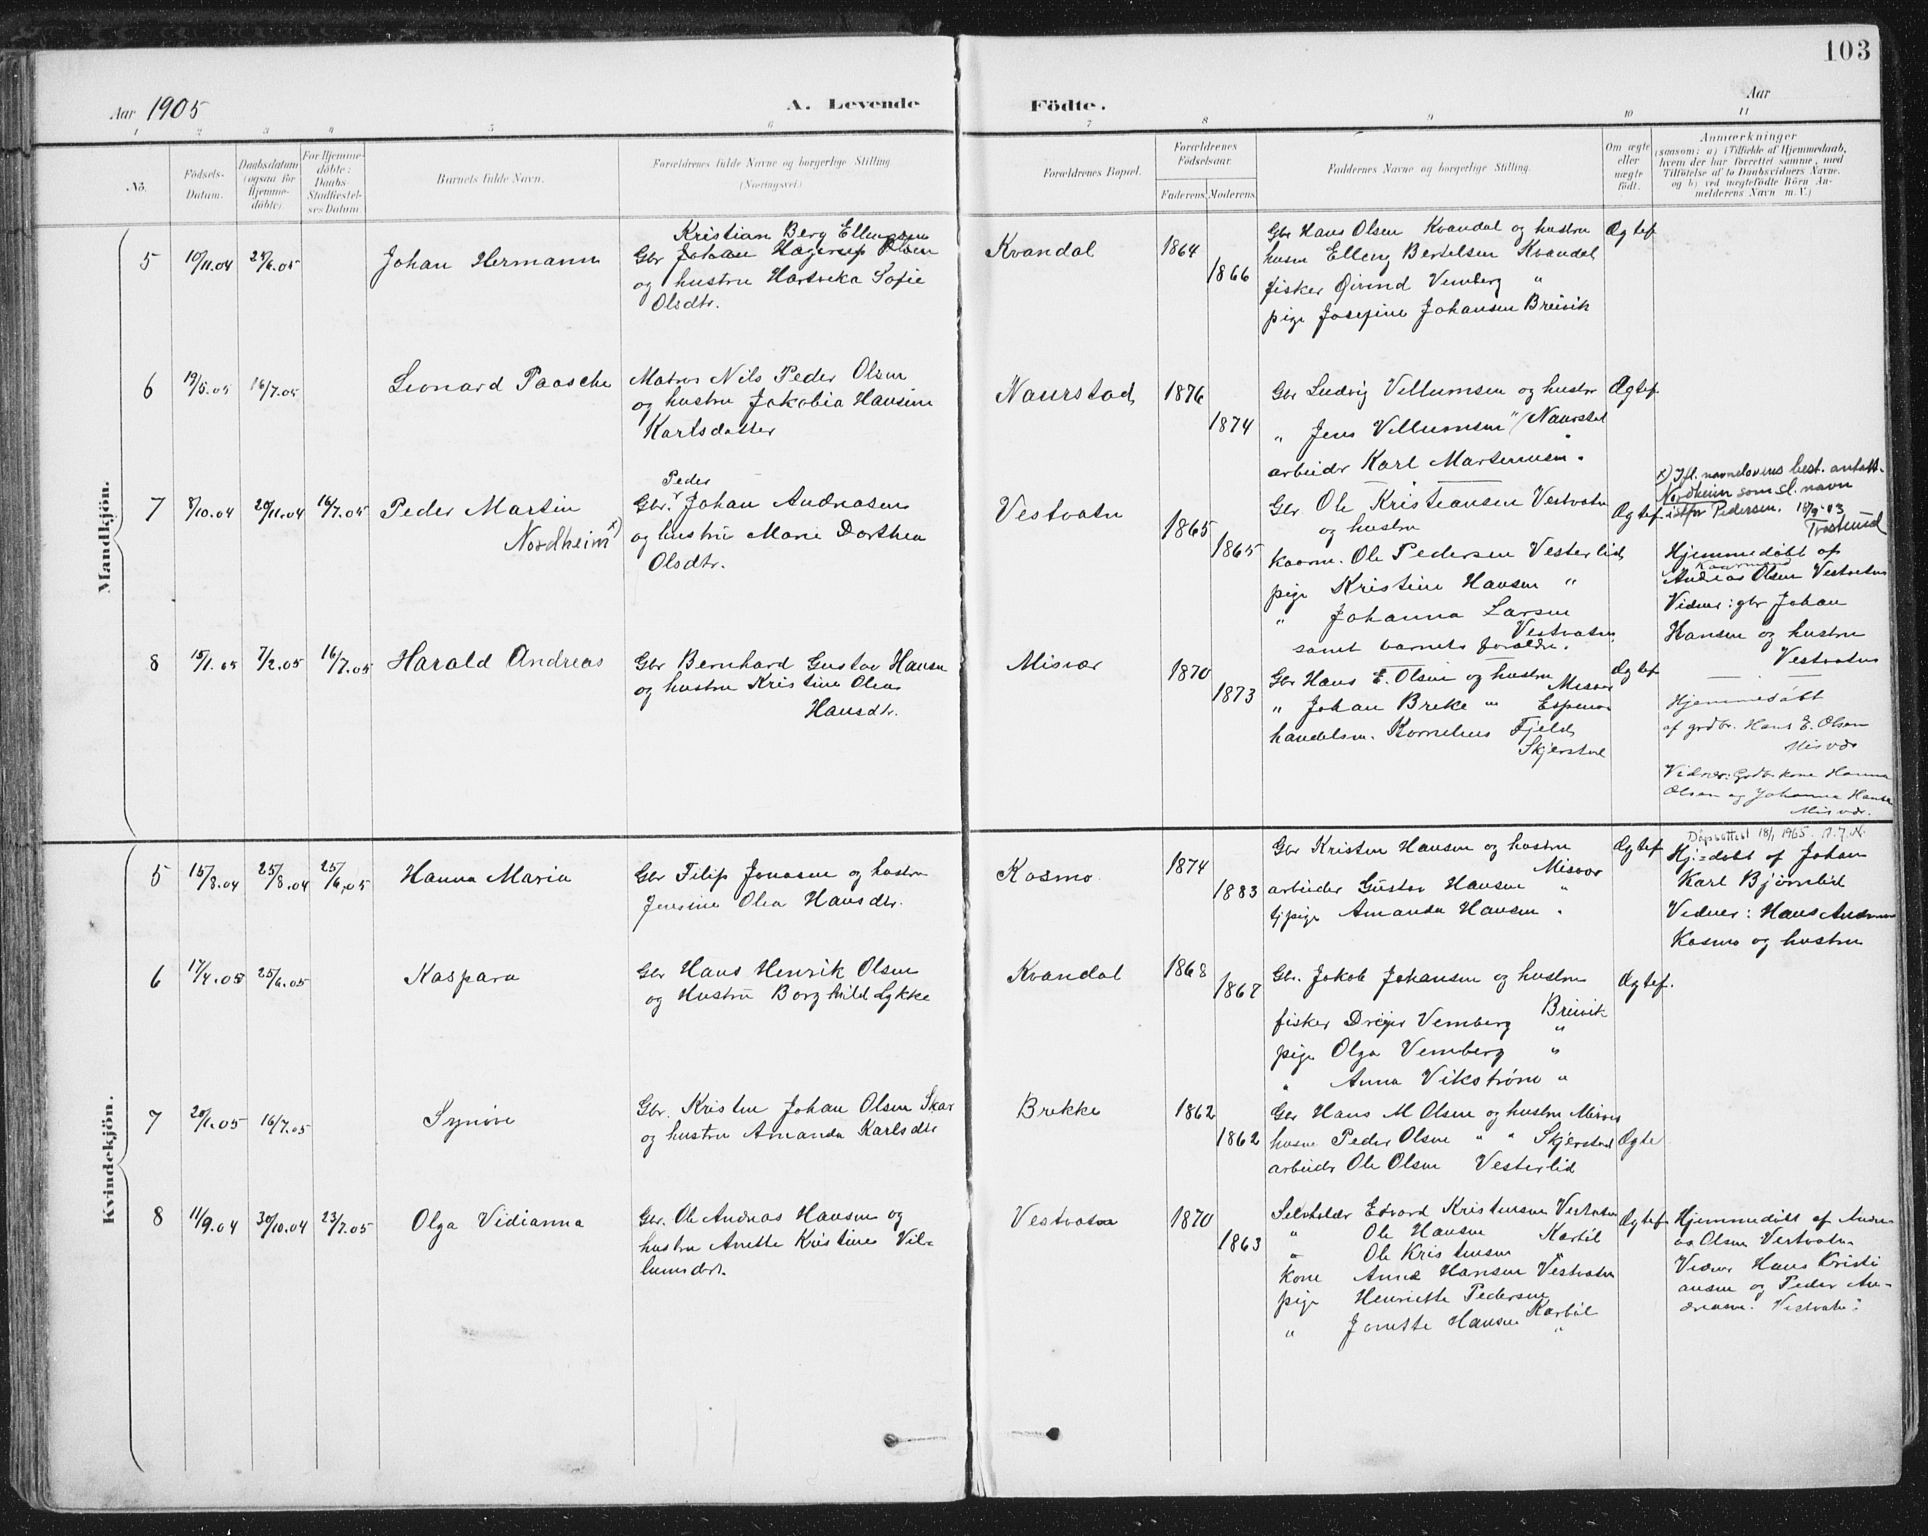 103
Aar 1905
A. Levende Födte.
Aar
1 2 3 4 5 6 7 8 9 10 11
No.
Födsels-Datum.
Daabsdatum (ogsaa for Hjemme-döbte).
For Hjemme-döbte: Daabs Stadfæstel-ses Datum.
Barnets fulde Navn.
Forældrenes fulde Navne og borgerlige Stilling (Næringsvei.)
Forældrenes Bopæl.
Forældrenes Födselsaar.
Faderens Moderens
Faddernes Navne og borgerlige Stilling.
Om ægte eller uægte födt.
Anmærkninger
(saasom: a) i Tilfælde af Hjemmedaab, hvem der har forrettet samme, med Tilföielse af to Daabsvidners Navne, og b) ved uægtefödte Börn An-melderens Navn m. V.)
Mandkjön.
5 10/11.04 25/6.05 Johan Hermann
Kristian Berg Ellingsen
Gbr Johan Hagerup
og hustru Hartvika Sofie
Olsdtr.
Kvandal 1864 1866
Gbr Hans Olsen Kvandal og hustru
husm Elling Bertelsen Kvandal
fisker Øivind Vemberg "
pige Josefine Johansen Breivik
Ægtef
6 19/5.05 16/7.05 Leonard Paasche
Matros Nils Peder Olsen
og hustru Jakobia Hansine
Karlsdatter
Naurstad 1876 1874
Gbr Ludvig Vellumsen og hustru
" Jens Vellumsen " / Naurstad
arbeider Karl Martinusen "
Ægtef.
7 8/10.04 20/11.04 16/7.05 Peder Martin
Nordheim x)
Peder
Gbr. Johan Andreasen
og hustru Marie Dorthea
Olsdtr.
Vestvatn 1865 1865
Gbr Ole Kristiansen Vestvatn
og hustru
kaarm. Ole Pedersen Vesterlid
pige Kristine Hansen "
" Johanna Larsen
Vestvatn
samt barnets forældre.
Ægtef
x) Ifl. navnelovens best. antatt
Nordheim som sl. navn
istfr Pedersen. 18/9-43
Hjemmedøbt af
Kaarmand
Andreas Olsen Vestvatn
Vidner: gbr Johan
Hansen og hustru
Vestvatn
8 15/1.05 7/2.05 16/7.05 Harald Andreas
Gbr Bernhard Gustav Hansen
og hustru Kristine Olea
Hansdtr.
Misvær 1870 1873
Gbr Hans E. Olsen og hustru
Misvær
" Johan Breke " Espenes
handelsm. Kornelius Fjeld
Skjerstad
Ægtef
Hjemmedøbt
af grdbr. Hans E. Olsen
Misvær
Vidner: Gbrkone Hanna
Olsen og Johanna Hansen
Misvær.
Kvindekjön.
5 15/8.04 25/8.04 25/6.05 Hanna Maria
Gbr Filip Jonasen og hustru
Jensine Olea Hansdtr.
Kosmo 1874 1883
Gbr Kristen Hansen og hustru
Misvær
arbeider Gustav Hansen "
tjpige Amanda Hansen "
Ægtef
Dåpsattest 18/1 1965.
Hj=døbt af Johan
Karl Bjørnlid
Vidner: Hans Andersen
Kosmo og hustru
6 17/4.05 25/6.05 Kaspara
Gbr Hans Henrik Olsen
og Hustru Borghild Lykke
Kvandal 1868 1867
Gbr. Jakob Johansen og hustru
Breivik
fisker Dreyer Vemberg "
pige Olga Vemberg "
" Anna Vikstrøm "
Ægtef.
7 20/1.05 16/7.05 Synøve
Gbr. Kristen Johan Olsen Skar
og hustru Amanda Karlsdtr
Brekke 1862 1862
Gbr Hans M Olsen og hustru Misvær
husm Peder Olsen " " Skjerstad
arbeider Ole Olsen Vesterlid
Ægte
8 11/9.04 30/10.04 23/7.05 Olga Vidianna
Gbr. Ole Andreas Hansen og
hustru Anette Kristine Vil-
lumsdtr.
Vestvatn 1870 1863
Selveier Edvard Kristensen Vestvatn
" Ole Hansen Karbøl
" Ole Kristensen "
kone Anna Hansen Vestvatn
pige Henriette Pedersen
Karbøl
" Jonette Hansen "
Ægtef
Hjemmedøbt af Andre-
as Olsen Vestvatn.
Vidner Hans Kristi
ansen og Peder An-
dreasen. Vestvatn.